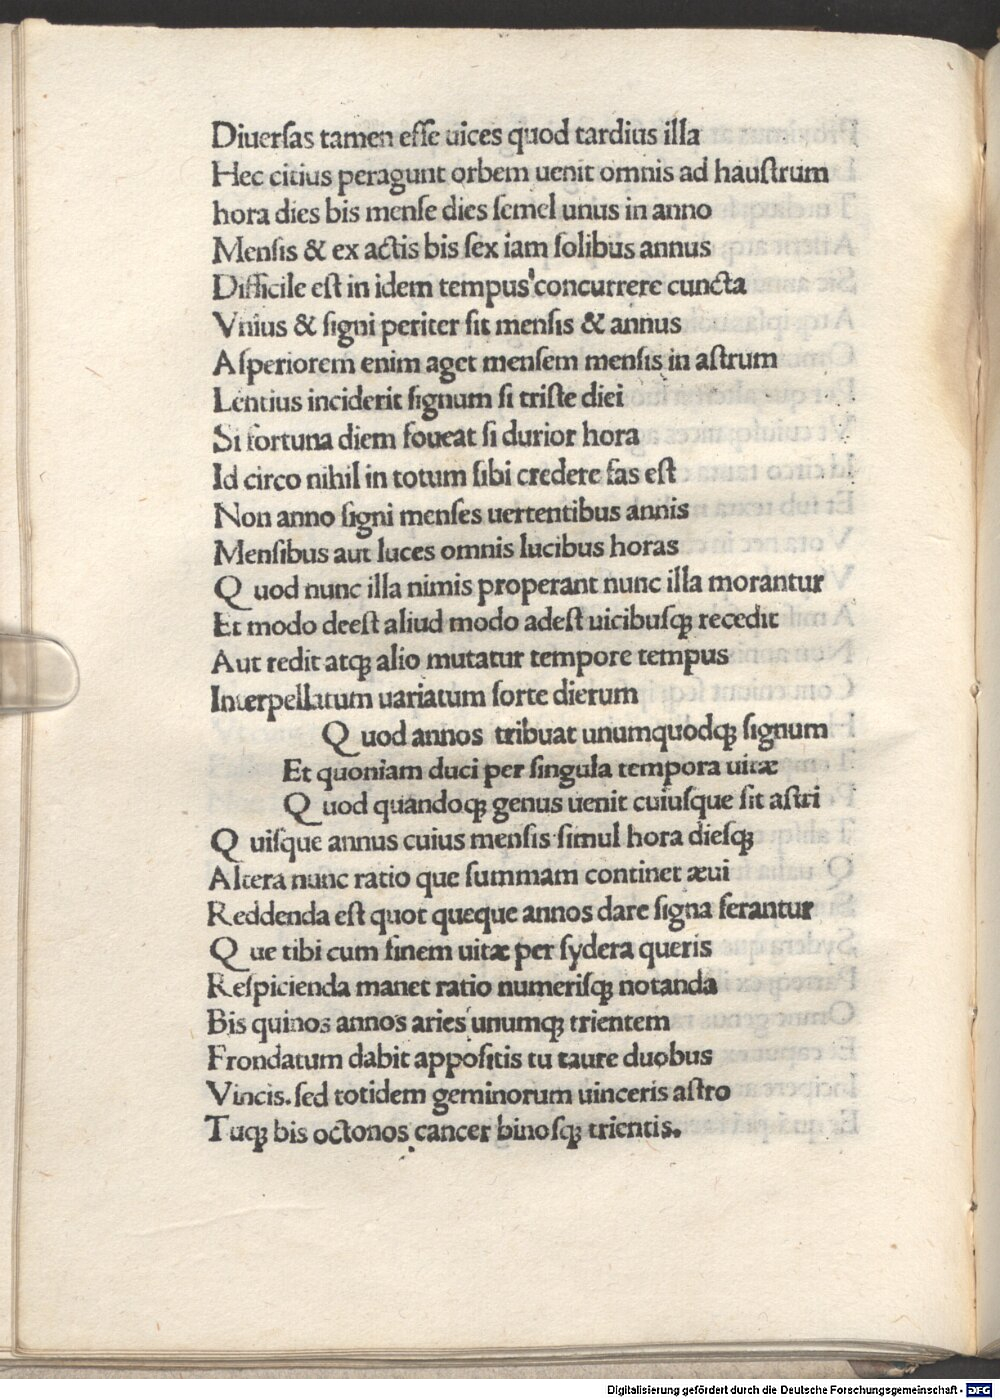 Diuerſas tamen eſſe uices quod tardius illa
Hec citius peragunt orbem uenit omnis ad hauſtrum
hora dies bis menſe dies ſemel unus in anno
Menſis & ex actis bis ſex iam ſolibus annus
Difficile eſt in idem tempus concurrere cuncta
Vnius & ſigni periter ſit menſis & annus
Aſperiorem enim aget menſem menſis in aſtrum
Lentius inciderit ſignum ſi triſte diei
Si fortuna diem foueat ſi durior hora
Id circo nihil in totum ſibi credere fas eſt
Non anno ſigni menſes uertentibus annis
Menſibus aut luces omnis lucibus horas
Quod nunc illa nimis properant nunc illa morantur
Et modo deeſt aliud modo adeſt uicibuſqꝫ recedit
Aut redit atqꝫ alio mutatur tempore tempus
Interpellatum uariatum ſorte dierum
Quod annos tribuat unumquodqꝫ ſignum
Et quoniam duci per ſingula tempora uitæ
Quod quandoqꝫ genus uenit cuiuſque ſit aſtri
Quiſque annus cuius menſis ſimul hora dieſqꝫ
Altera nunc ratio que ſummam continet æui
Reddenda eſt quot queque annos dare ſigna ferantur
Que tibi cum finem uitæ per ſydera queris
Reſpicienda manet ratio numeriſqꝫ notanda
Bis quinos annos aries unumqꝫ trientem
Frondatum dabit appoſitis tu taure duobus
Vincis. ſed totidem geminorum uinceris aſtro
Tuqꝫ bis octonos cancer binoſqꝫ trientis.
Digitalisierung gefördert durch die Deutsche Forschungsgemeinschaft - DFG